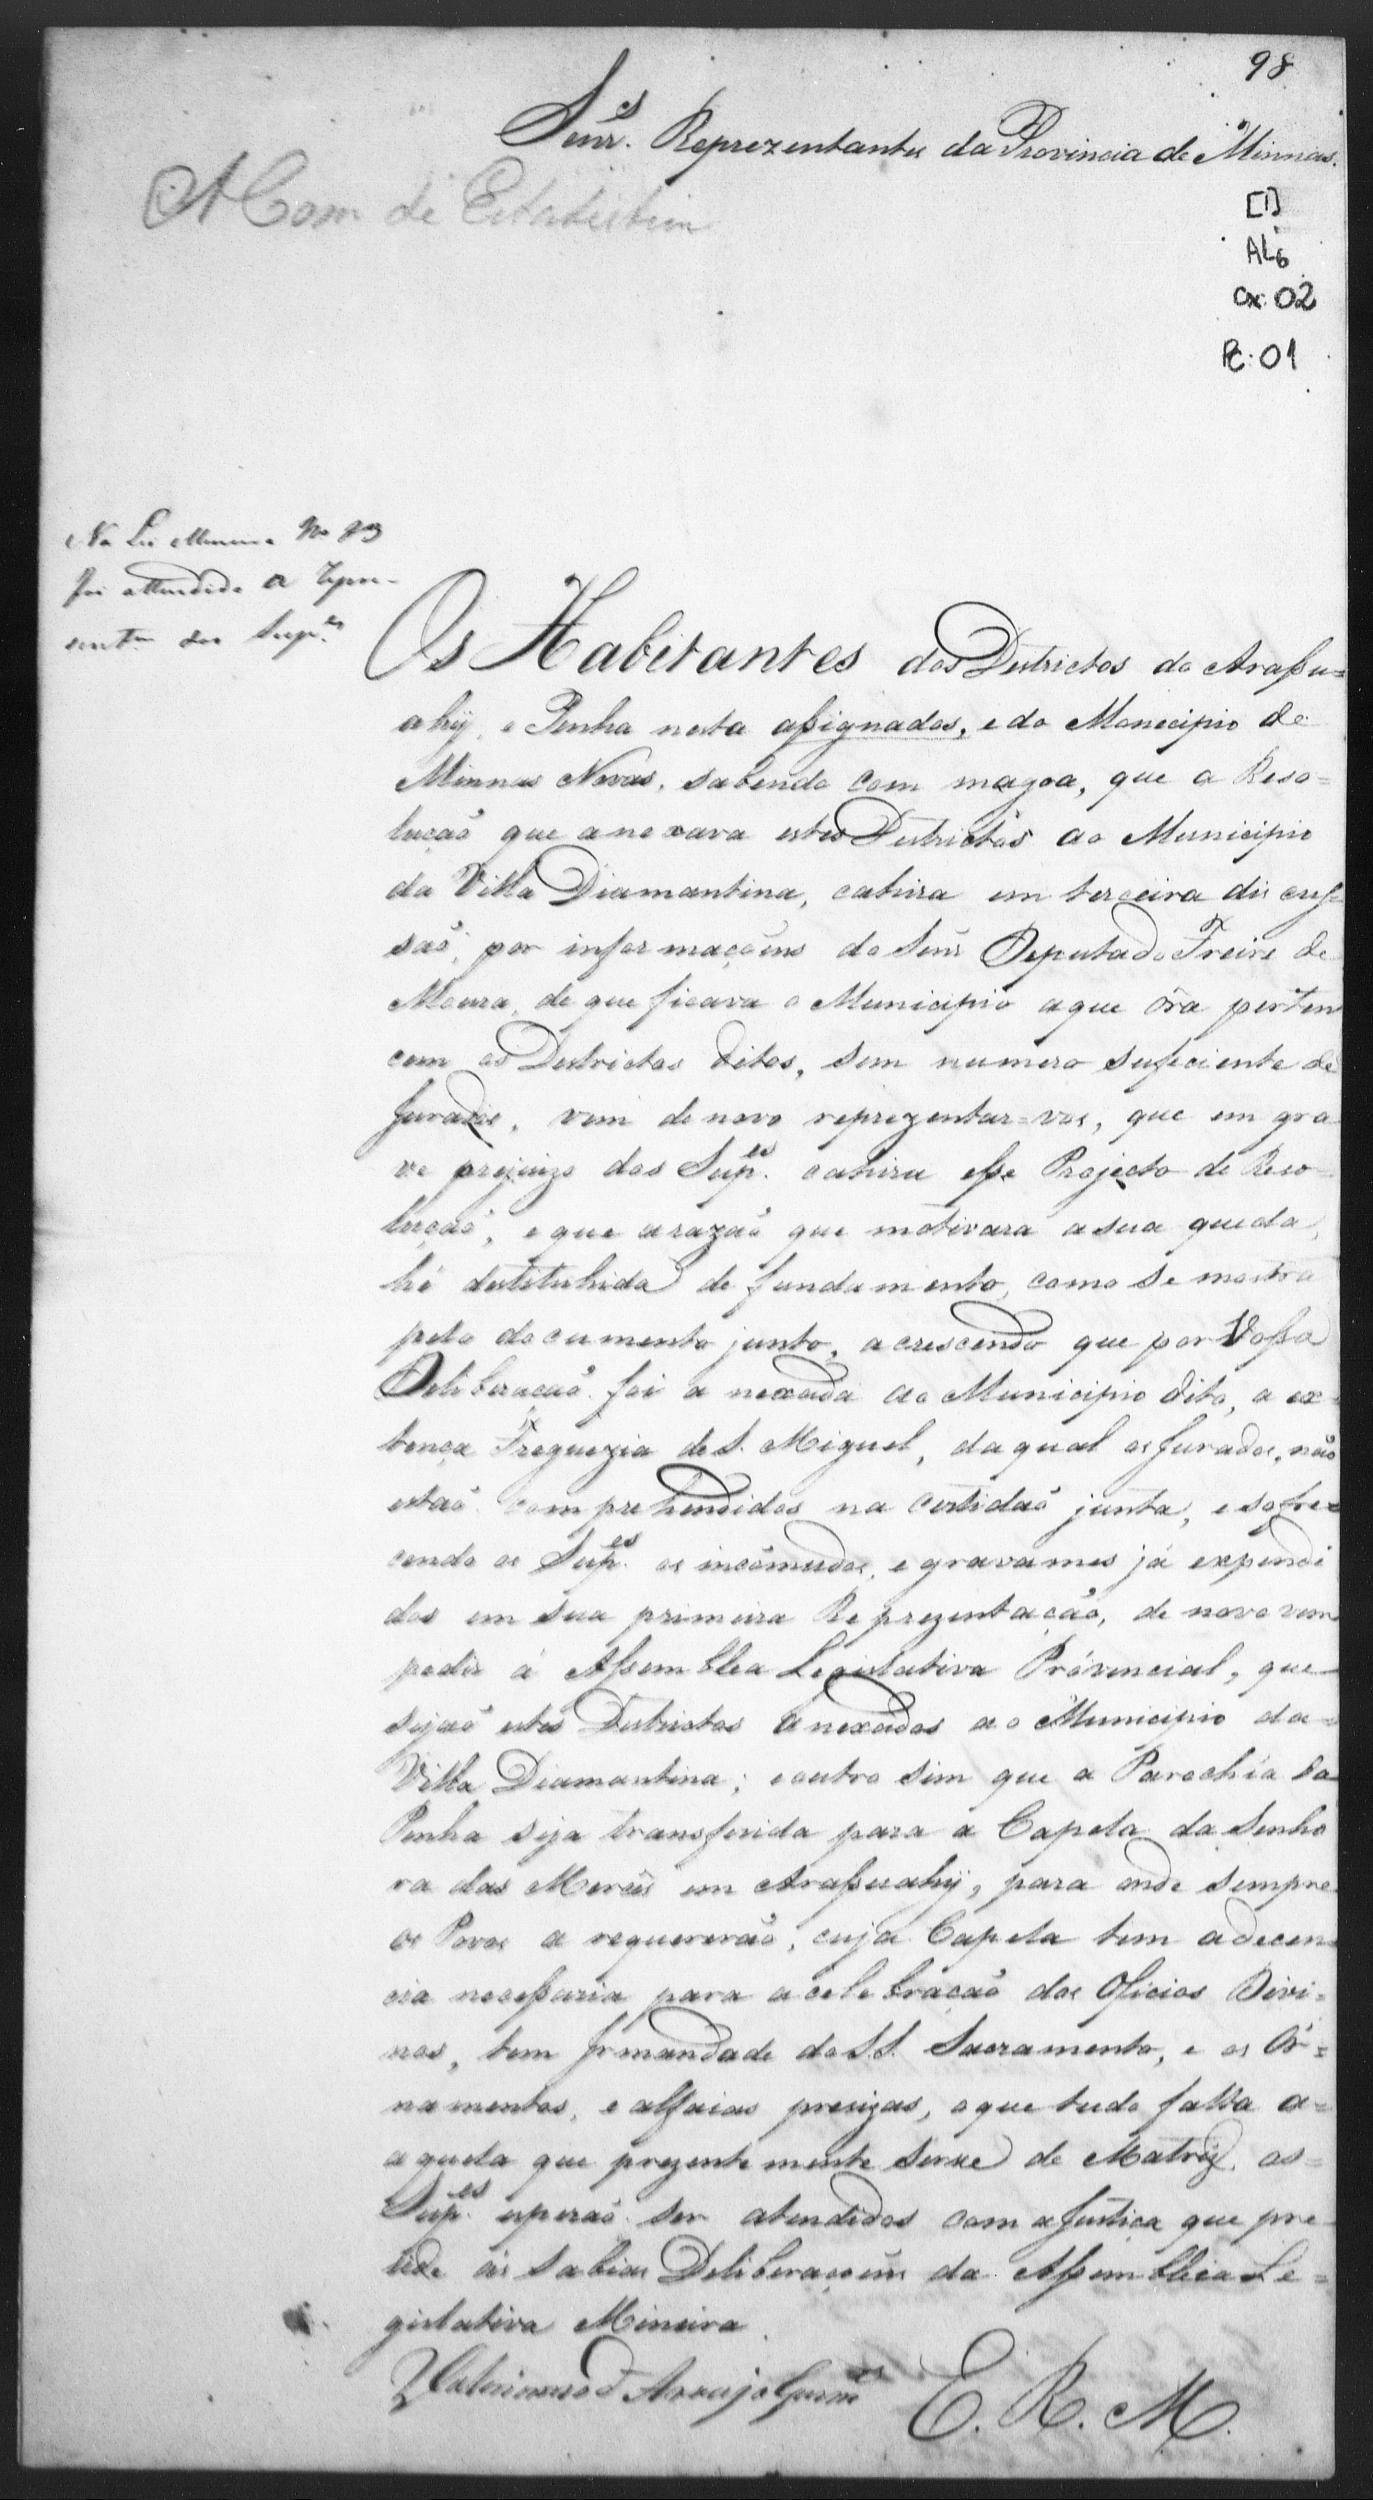 98
Senr.es Reprezentantes da Provincia de Minnas.
A Com de Estatistica
[1]
AL6
Cx: 02
Pc: 01
Na Lei Mineira No
foi attendida a Repre-
sentam dos Sup.es
Os Habitantes dos Destrictos do Arassu=
ahÿ, e Penha nesta assignados, e do Monecipio de
Minnas Novas, sabendo com magoa, que a Reso=
lução que anexara estes Destrictos ao Municipio
da Villa Diamantina, cahira em terceira discus-
são, por informaçoens do Senr Deputado Freire de
Moura, de que ficava o Municipio a que óra perten
cem os Destrictos ditos, sem numero suficiente de
Jurados, vem de novo reprezentar=vos, que em gra
ve prejuizo dos Sup.es cahira esse Projecto de Reso
lução, e que a razaõ que motivara a sua queda,
hé destituhida de fundamento, como se mostra
pelo documento junto, acrescendo que por Vossa
Deliberação foi anexada ao Municipio dito, a ex
tença Freguezia de S. Miguel, da qual os Jurados, não
estaõ comprehendidos na Certidaõ junta, e sofre=
cendo os Sup.es os incómudos, e gravames já expendi
dos em sua primeira Reprezentação, de novo vem
pedir á Assemblea Legislativa Provincial, que
sejaõ estes Destrictos anexados ao Municipio da=
Villa Diamantina; e outro sim que a Parochia da
Penha seja transferida para a Capela da Senho
ra das Mercês em Arassuahÿ, para onde sempre
os Povos a requererão, cuja Capela tem a decen=
cia necessaria para a celebração dos Oficios Divi=
nos, tem Irmandade do S.S. Sacramento, e os Or=
namentos, e alfaias precizas, o que tudo falta a=
aquela que prezentemente serve de Matriz, os=
Sup.es esperaõ ser atendidos com a Justiça que pre
side ás Sabias Deliberaçoens da Assemblea Le=
gislativa Mineira
Araujo Guim.es E. R. M.